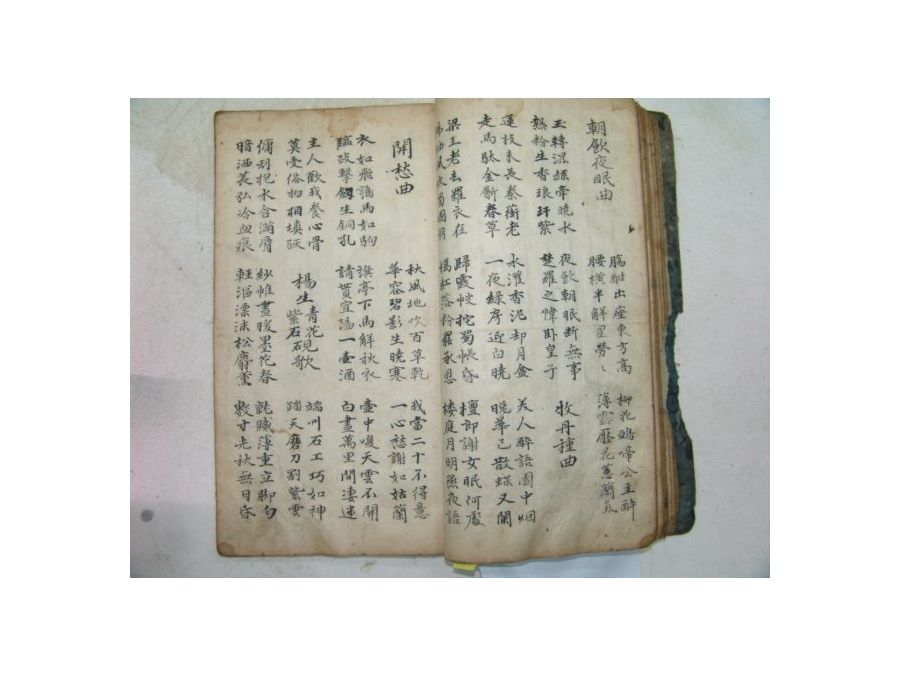 朝飲夜眠曲
觴酣出座東方高
腰橫半解星勞〻
柳花鴉啼公主醉
薄露壓花蕙蘭氣
玉轉濕絲牽曉水
熱粉生香琅玕紫
夜飲朝眠斷無事
楚羅之幃卧皇子
牧丹種曲
蓮枝未長秦蘅老
走馬馱金斸春草
水灌香泥却月盆
一夜綠房迎白曉
美人醉語園中烟
晚華已散蝶又闌
梁王老去羅衣在
拂袖風吹蜀國
歸霞帔拕蜀帳昏
嫣紅落粉罷承恩
檀郎謝女眠何處
樓庭月明燕夜語
開愁曲
秋風地吹百草乾
華容碧影生曉寒
我當二十不得意
一心愁謝如姑蘭
衣如飛鶉馬如駒
臨歧擊劔生銅孔
旗亭下馬解秋衣
請貰宜陽一壺酒
壺中喚天雲不開
白晝萬里間凄迷
主人歡我養心骨
莫受俗物相填豗
楊生青花硯
紫石硯歌
端州石工巧如神
踏天磨刀割紫雲
傭刓抱水含滿脣
暗洒萇弘冷血痕
紗帷晝暖墨花春
輕漚漂沫松麝薰
膩薄重立脚匀
數寸光秋無日昏